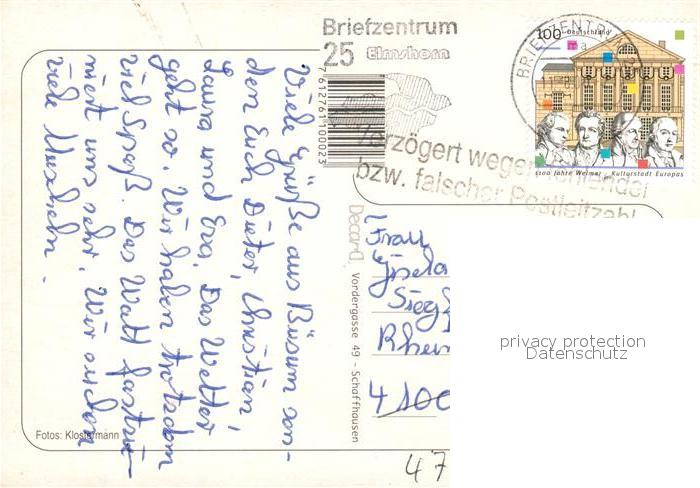 Briefzentrum
25 Elmshorn
BRIEFZENTRUM
a
100 Deutschland
1100 Jahre Weimar - Kulturstadt Europas
Verzögert wegen fehlender
bzw. falscher Postleitzahl
7612761100023
Viele Grüße aus Büsum sen-
den Euch Dieter, Christian,
Laura und Eva. Das Wetter
geht so. Wir haben trotzdem
viel Spaß. Das Watt faszi-
niert uns sehr. Wir suchen
viele Muscheln.
Vordergasse 49 - Schaffhausen
Frau
Gisela
Sieg
Rhein
4100
47
privacy protection
Datenschutz
Fotos: Klostermann